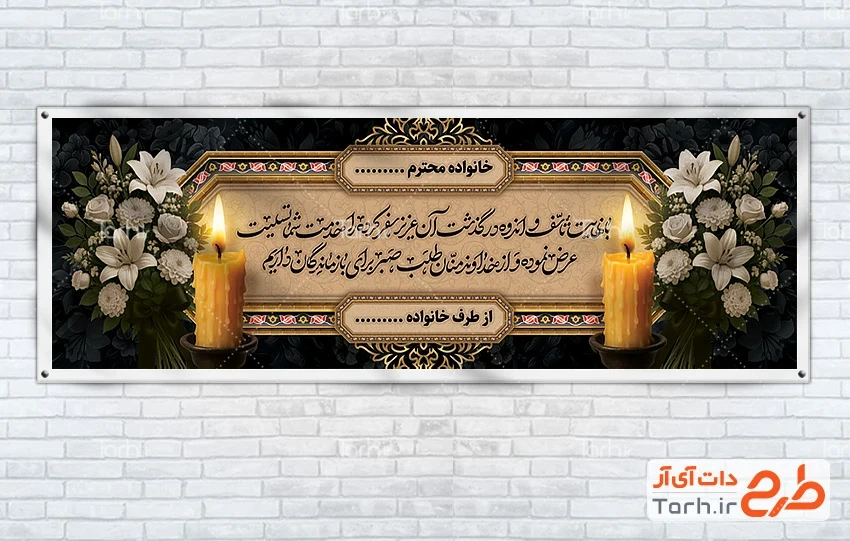 خانواده محترم .........
با نهایت تأسف و اندوه درگذشت آن عزیز سفر کرده را خدمت شما تسلیت
عرض نموده و از خداوند منان طلب صبر برای بازماندگان داریم
از طرف خانواده .........
طرح دات آی آر
Tarh.ir